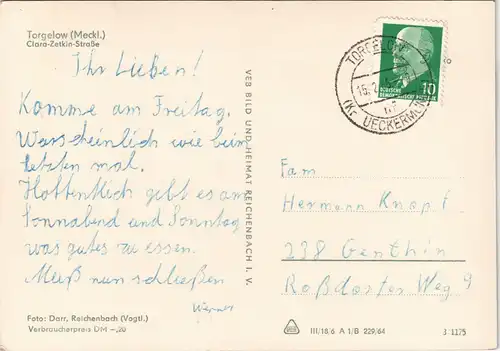 Torgelow (Meckl.)
Clara-Zetkin-Straße
Ihr Lieben!
Komme am Freitag.
Warscheinlich wie beim
letzten mal.
Hoffentlich gibt es am
Sonnabend und Sonntag
was gutes zu essen.
Muß nun schließen
Werner
Foto: Darr, Reichenbach (Vogtl.)
Verbraucherpreis DM -,20
VEB BILD UND HEIMAT REICHENBACH I. V.
TORGELOW
15.2.
(Kr. UECKERMÜN
DEUTSCHE
DEMOKRATISCHE REPUBLIK
10
Fam
Hermann Knapf
238 Genthin
Roßdorfer Weg 9
III/18/6 A 1/B 229/64
3 1175